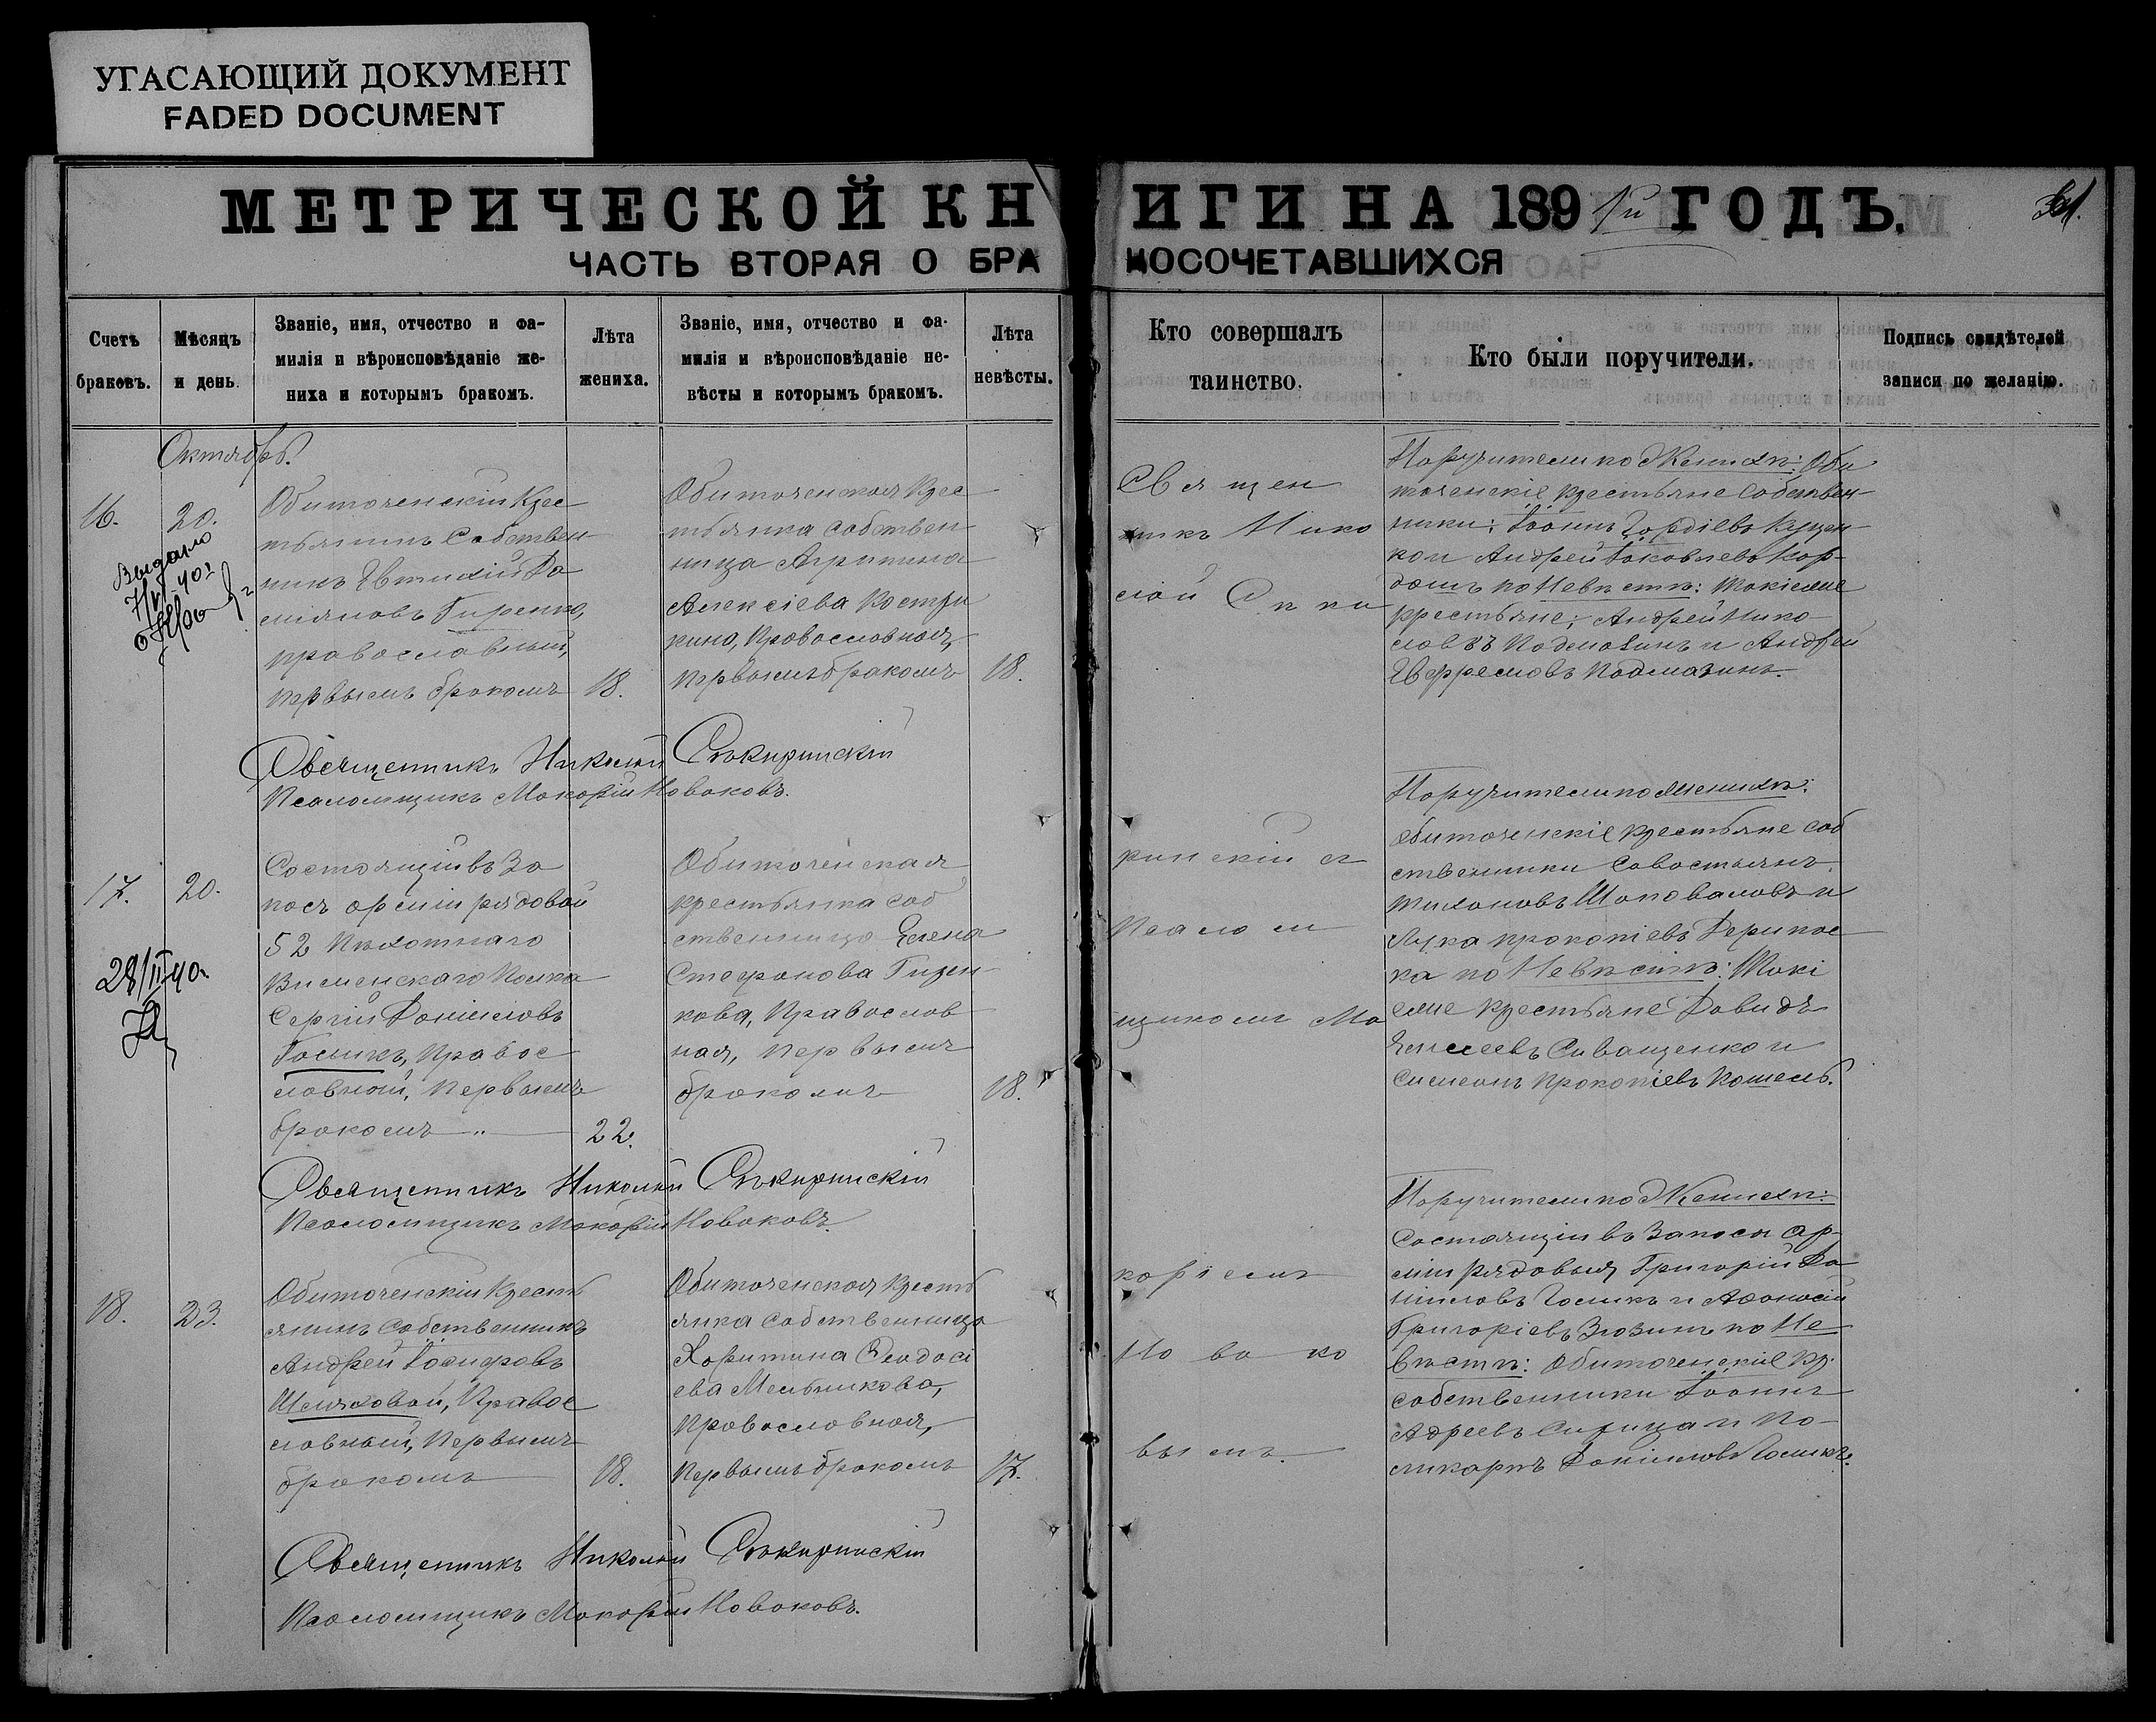 УГАСАЮЩИЙ ДОКУМЕНТ
FADED DOCUMENT
МЕТРИЧЕСКОЙ КНИГИ НА 1891й ГОДЪ.
ЧАСТЬ ВТОРАЯ О БРАКОСОЧЕТАВШИХСЯ
Счетъ
браковъ.
Мѣсяцъ
и день.
Званіе, имя, отчество и фа-
милія и вѣроисповѣданіе же-
ниха и которымъ бракомъ.
Лѣта
жениха.
Званіе, имя, отчество и фа-
милія и вѣроисповѣданіе не-
вѣсты и которымъ бракомъ.
Лѣта
невѣсты.
Кто совершалъ
таинство.
Кто были поручители.
Подпись свидѣтелей
записи по желанію.
Октябрь.
16.
20.
Выдано
Обиточенскій Крес
тьянинъ Собствен
никъ Евтихій Да
міановъ Гиренко,
православный,
первымъ бракомъ
18.
Обиточенская Крес
тьянка собствен
ница Агрипина
Алексіева Костри
кина, Православная,
первымъ бракомъ
18.
Поручители по Женихѣ: Оби
точенскіе крестьяне Собствен-
ники: Іоаннъ Гордіевъ Куцен-
ко и Андрей Іаковлевъ Кор-
по Невѣстѣ: Такіеже
крестьяне: Андрей Нико
лаевъ Подмазинъ и Андрей
Евфремовъ Подмазинъ.
Священникъ Николай Сѣкиринскій
Псаломщикъ Макарій Новаковъ.
17.
20.
28/II 40.
Состоящій въ За
пасѣ арміи рядовой
52 Пѣхотнаго
Виленскаго Полка
Сергій Даніиловъ
Голикъ, Правос
лавный, Первымъ
бракомъ
22.
Обиточенская
крестьянка соб
ственница Елена
Стефанова Гицен
кова, Православ
ная, Первымъ
бракомъ
18.
Поручители по женихѣ:
Обиточенскіе крестьяне соб
ственники Савостьянъ
Тихоновъ Шаповаловъ и
Лука Прокопіевъ Дерипас
ка по Невѣстѣ: Такі
еже крестьяне Давидъ
Елисеевъ Сиващенко и
Симеонъ Прокопіевъ Кошель.
Священникъ Николай Сѣкиринскій
Псаломщикъ Макарій Новаковъ.
18.
23.
Обиточенскій Кресть
янинъ Собственникъ
Андрей Іосифовъ
Шляховой, Правос
лавный, Первымъ
бракомъ
18.
Обиточенская Кресть
янка Собственница
Харитина Ѳеодосі
ева Мельникова,
Православная,
Первымъ бракомъ
17.
Поручители по Женихѣ:
Состоящіи въ Запасѣ ар-
міи рядовыя Григорій Да
ніиловъ Голикъ и Аѳанасій
Григоріевъ Зюзинъ по Не
вѣстѣ: Обиточенскіе Кр.
собственники Іоаннъ
Адреевъ Синица и По-
ликарпъ Даніиловъ Голикъ.
Священникъ Николай Сѣкиринскій
Псаломщикъ Макарій Новаковъ.
Священ
никъ Нико
лай Сѣки
ринскій съ
Псалом
щикомъ Ма
каріемъ
Новако
вымъ.